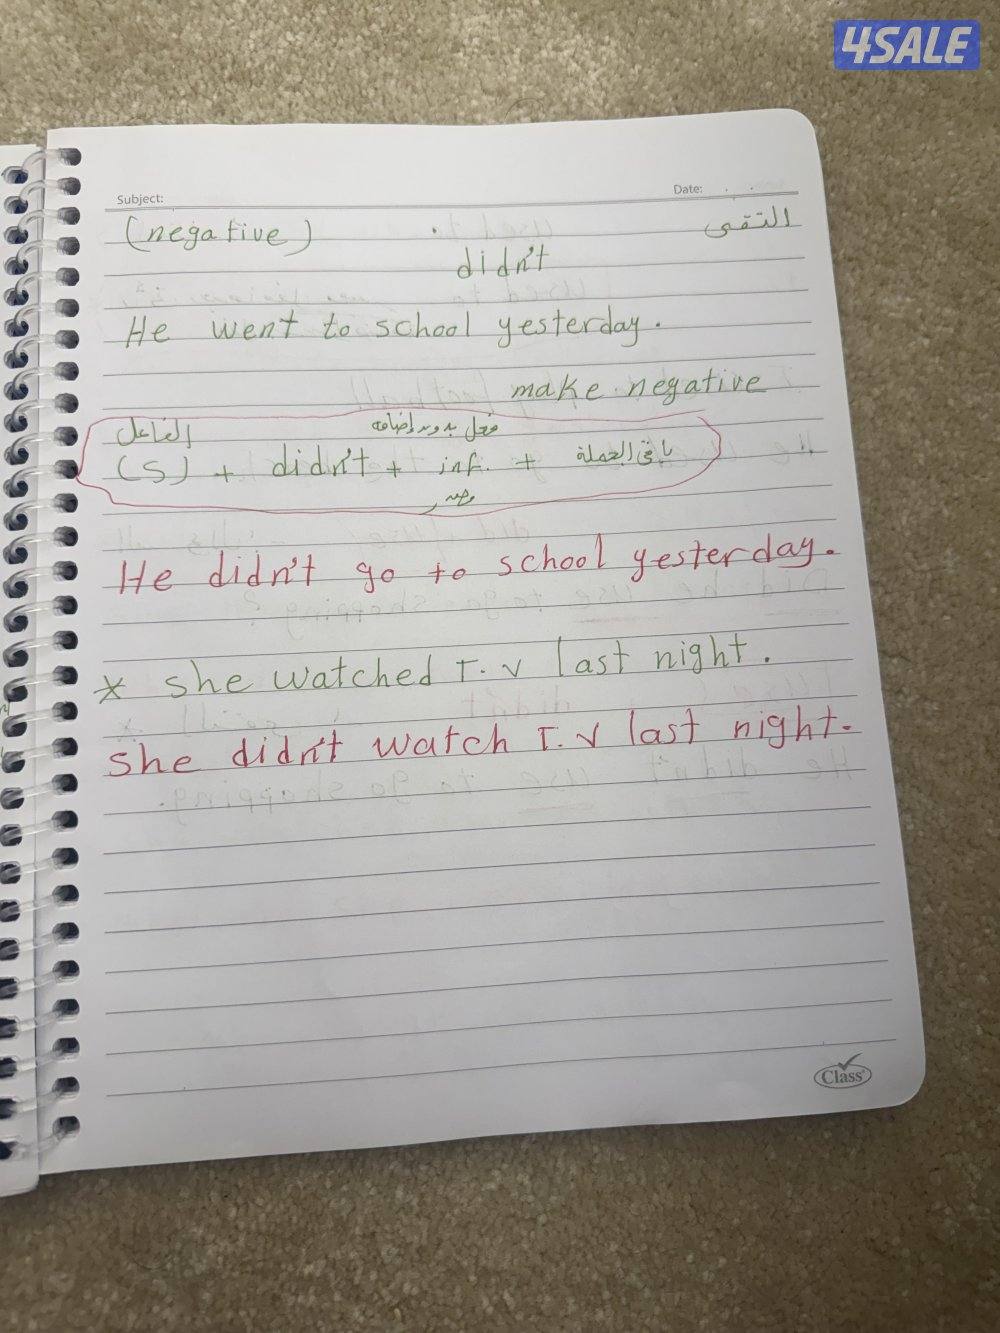 4SALE
Subject: Date:
(negative) النفى
didn't
He went to school yesterday.
make negative
الفاعل فعل بدون إضافه
(S) + didn't + inf. + باقى الجملة
He didn't go to school yesterday.
* she watched T.V last night.
she didn't watch T.V last night.
Class